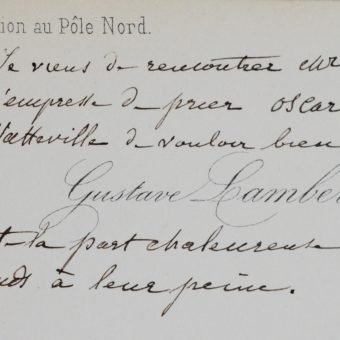 ion au Pôle Nord.
Je viens de rencontrer Mr
'empresse de prier Oscar
Watteville de vouloir bien
Gustave Lamber
t la part chaleureuse
nds à leur peine.